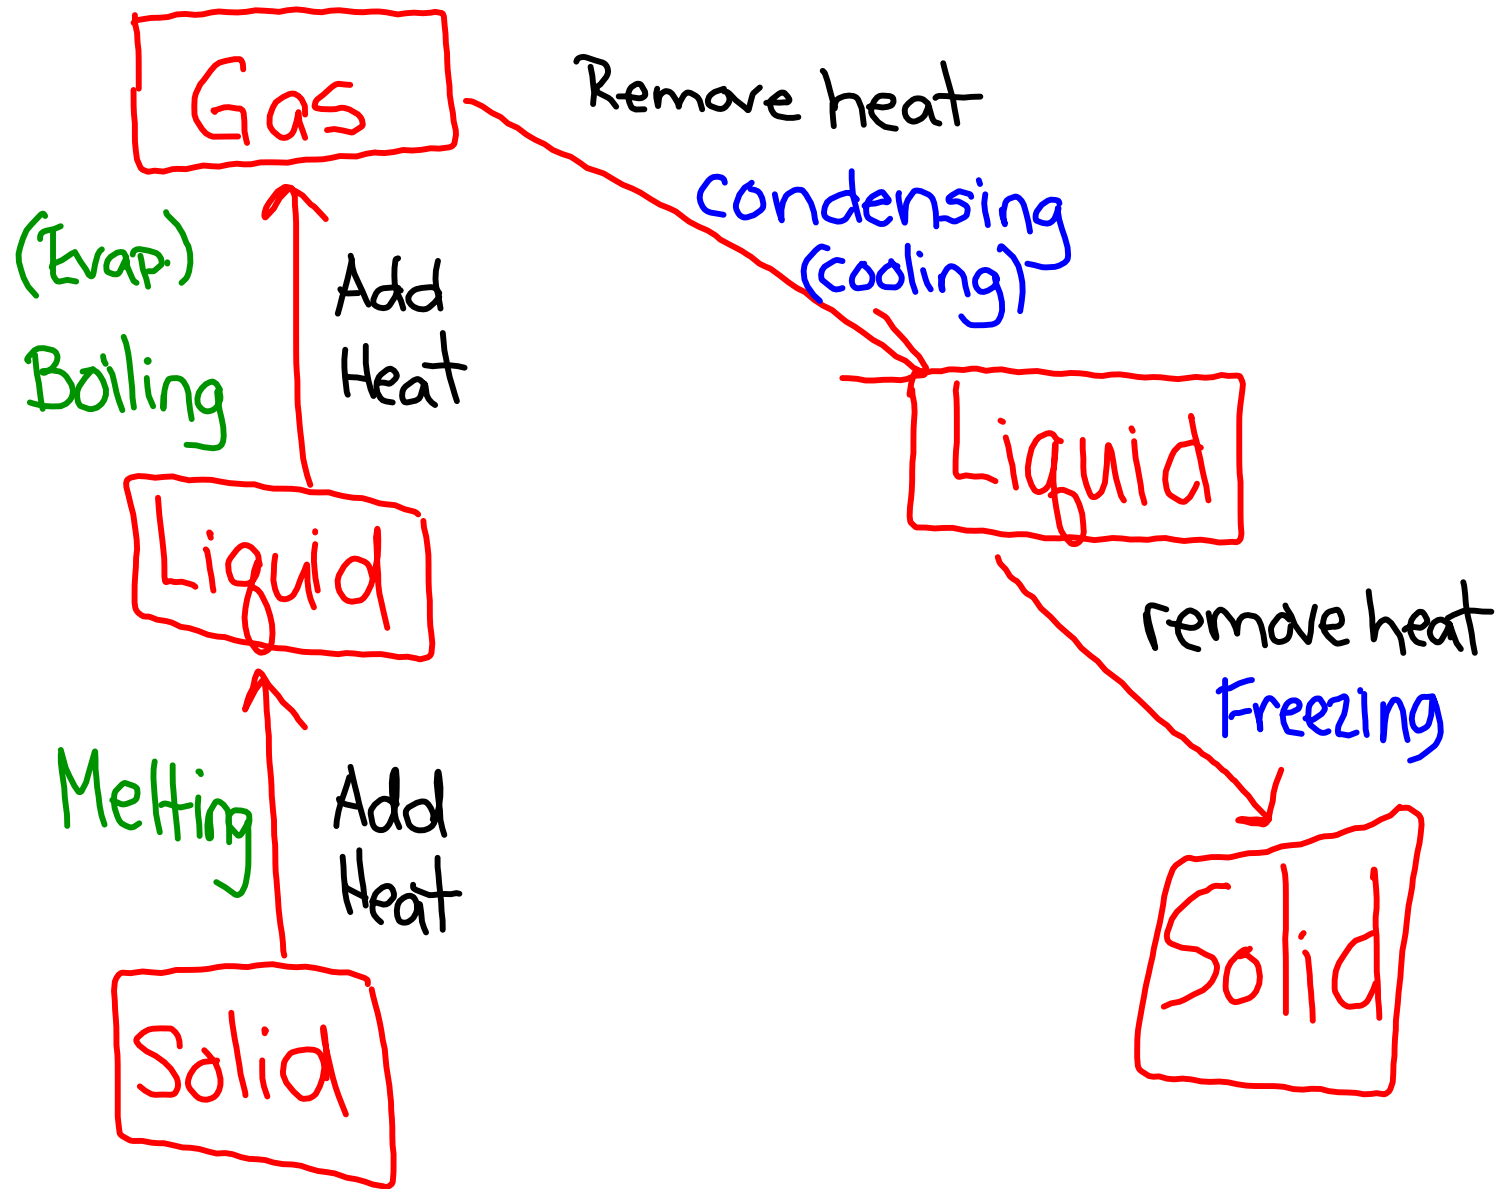 Gas
Remove heat
Condensing
(cooling)
(Evap.)
Boiling
Add
Heat
Liquid
Liquid
remove heat
Freezing
Melting
Add
Heat
Solid
Solid